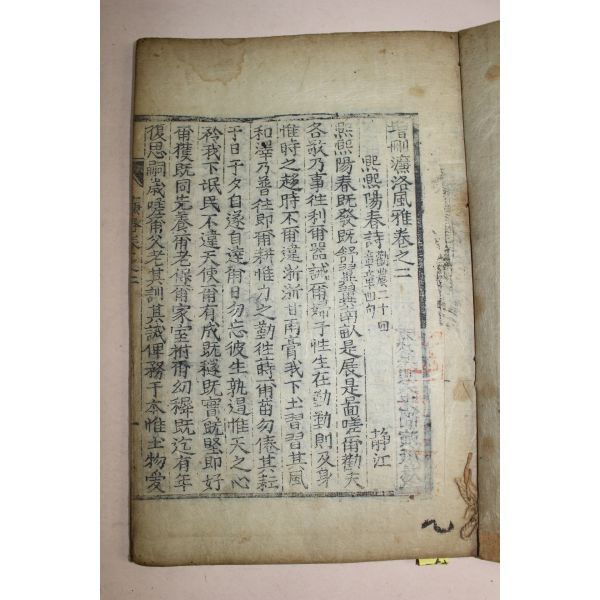 增刪濂洛風雅卷之二
熙熙陽春詩 勸農二十四章章四句 靜江
熙熙陽春既發既舒翼翼南畝是展是圖嗟爾勸夫
各敬乃事往利爾器誡爾婦子生在勤勤則及身
惟時之趨時不爾違浙浙甘雨膏我下土習習其風
和澤乃普往即爾耕惟力之勤往蒔爾苗勿倦其耘
于日于夕自遂自達爾日勿忘彼生孰遏惟天之心
矜我下氓民不違天使爾有成既穟既實既堅即好
爾獲既同先養爾老保爾家室拊爾幼穉既迄有年
復思嗣歲嗟爾父老其訓其誡俾務于本惟土物愛